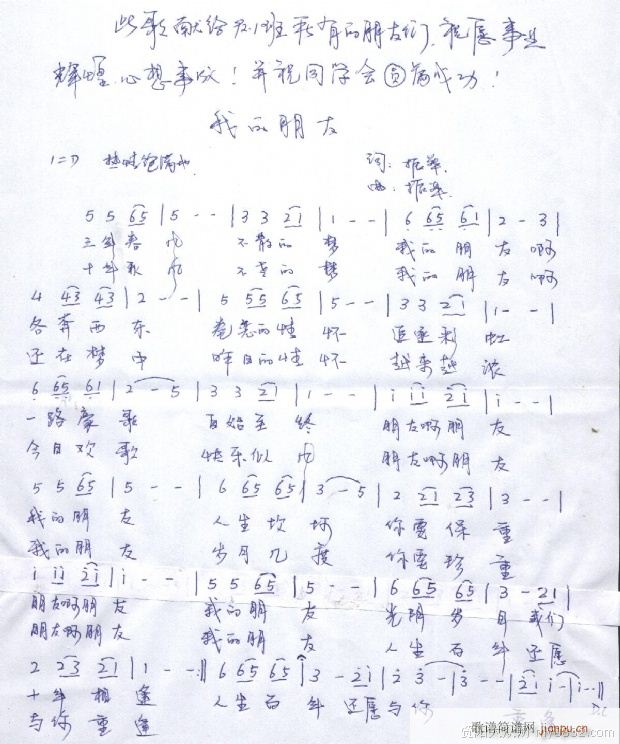 此歌献给 班所有的朋友们,祝愿事业
辉煌,心想事成!并祝同学会圆满成功!
我的朋友
1=D 热情饱满地
词:振
曲:振
5 5 65 | 5 - - | 3 3 21 | 1 - - | 6 65 61 | 2 - 3 |
三年春风 不散的梦 我的朋友啊
十年歌风 不老的梦 我的朋友啊
4 43 43 | 2 - - | 5 55 65 | 5 - - | 3 3 21 | 1 - - |
各奔西东 眷恋的情怀 追逐彩虹
还在梦中 昨日的情怀 越来越浓
6 65 61 | 2 - 5 | 3 3 21 | 1 - - | i ii 2i | i - - |
一路高歌 自始至终 朋友啊朋友
今日欢歌 快乐似风 朋友啊朋友
5 5 65 | 5 - - | 6 65 65 | 3 - 5 | 2 21 23 | 3 - - |
我的朋友 人生坎坷 你要保重
我的朋友 岁月几度 你要珍重
i ii 2i | i - - | 5 5 65 | 5 - - | 6 65 65 | 3 - 21 |
朋友啊朋友 我的朋友 光阴岁月我们
朋友啊朋友 我的朋友 人生百年还愿
2 23 21 | 1 - - :|| 6 65 65 | 3 - 2i | 2 3 - | 3 - - | 2i i - | i - - ||
十年相逢 人生百年还愿与你 重逢
与你重逢
D.C
歌谱简谱网 jianpu.cn